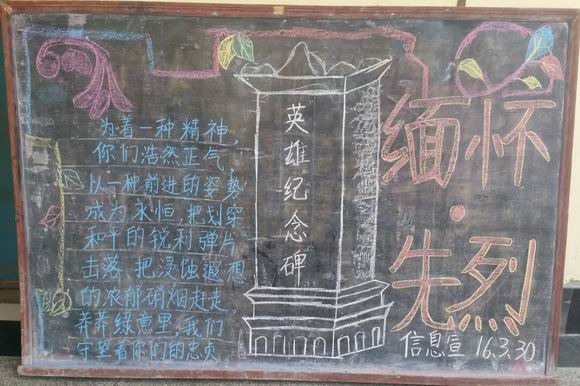 为着一种精神,
你们浩然正气,
以一种前进的姿势
成为永恒,把划穿
和平的锐利弹片
击落,把浸蚀遐想
的浓郁硝烟赶走。
莽莽绿意里,我们
守望着你们的忠贞
英雄纪念碑
缅怀
·
先烈
信息宣 16.3.30